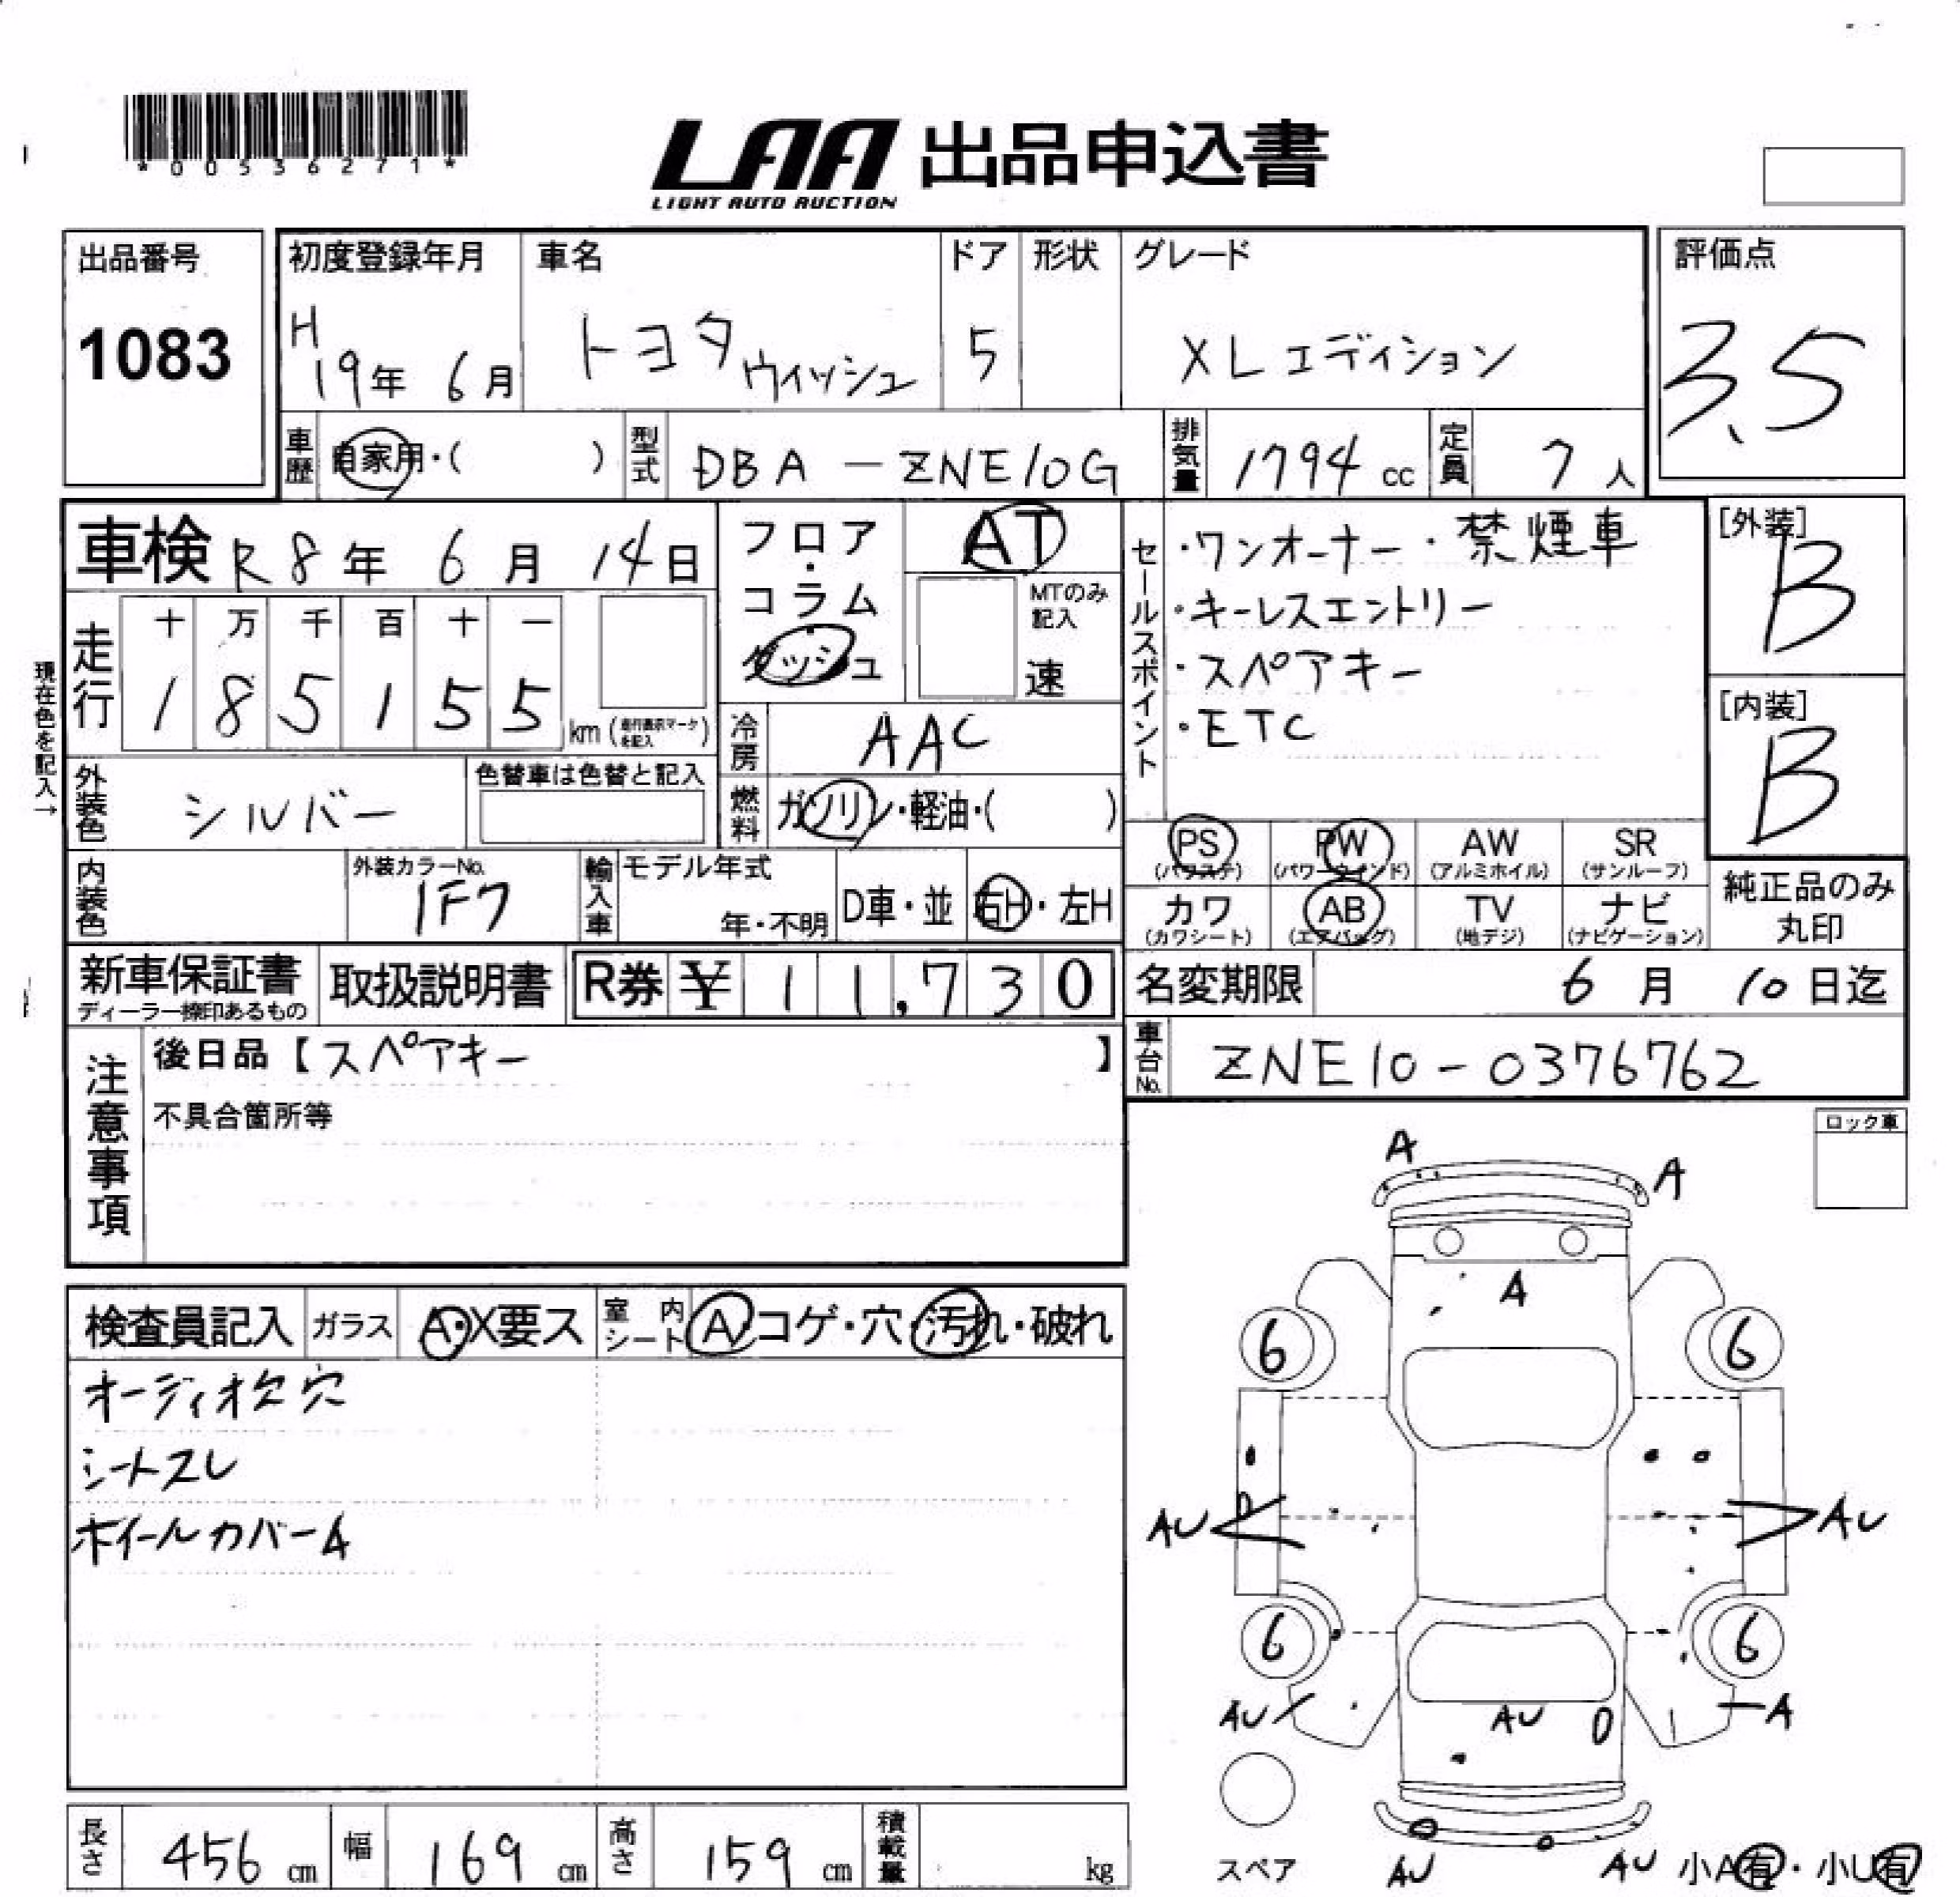 *00536271*
LAA 出品申込書
LIGHT AUTO AUCTION
出品番号
1083
初度登録年月
H
19年 6月
車名
トヨタ ウィッシュ
ドア
5
形状
グレード
XLエディション
評価点
3.5
車歴
自家用・( )
型式
DBA－ZNE10G
排気量
1794 cc
定員
7 人
車検 R8年 6月 14日
フロア・コラム・ダッシュ
AT
MTのみ記入
速
セールスポイント
・ワンオーナー・禁煙車
・キーレスエントリー
・スペアキー
・ETC
[外装]
B
[内装]
B
現在色を記入→
走行
十 万 千 百 十 一
1 8 5 1 5 5
km (走行表示マークを記入)
冷房
AAC
外装色
シルバー
色替車は色替と記入
燃料
ガソリン・軽油・( )
内装色
外装カラーNo.
1F7
輸入車
モデル年式
年・不明
D車・並
右H・左H
PS
(パワステ)
PW
(パワーウインド)
AW
(アルミホイル)
SR
(サンルーフ)
カワ
(カワシート)
AB
(エアバッグ)
TV
(地デジ)
ナビ
(ナビゲーション)
純正品のみ
丸印
新車保証書
ディーラー捺印あるもの
取扱説明書
R券 ¥ 11,730
名変期限
6月 10日迄
注意事項
後日品【スペアキー 】
不具合箇所等
車台No.
ZNE10-0376762
ロック車
検査員記入
ガラス
A・X要ス
室内シート
A・コゲ・穴・汚れ・破れ
オーディオ欠穴
シートスレ
ホイールカバーA
A
A
A
6
6
AU
AU
6
6
AU
AU
A
スペア
AU
AU
小A有・小U有
長さ
456 cm
幅
169 cm
高さ
159 cm
積載量
kg